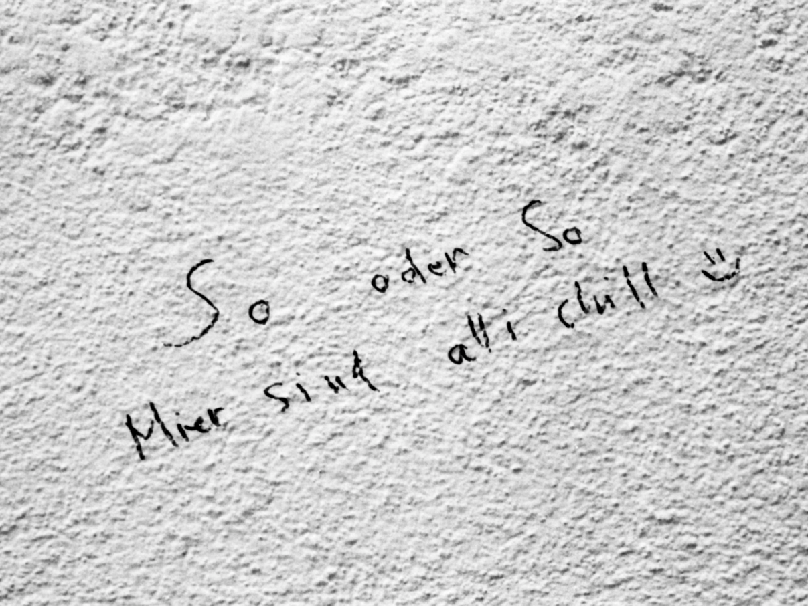 So oder So
Mier sind alli chill